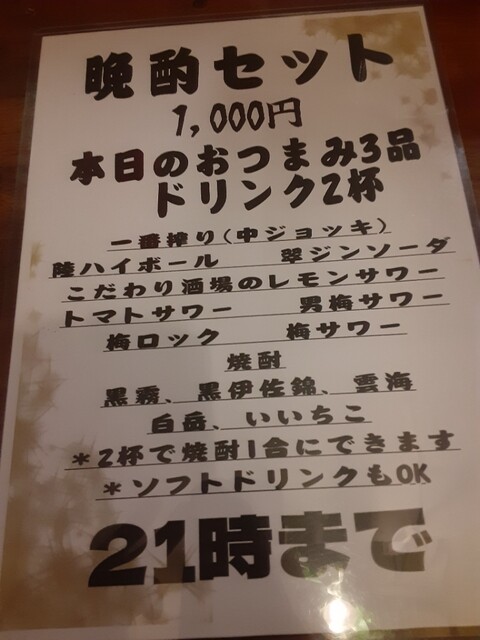 晩酌セット
1,000円
本日のおつまみ3品
ドリンク2杯
一番搾り(中ジョッキ)
陸ハイボール 翠ジンソーダ
こだわり酒場のレモンサワー
トマトサワー 男梅サワー
梅ロック 梅サワー
焼酎
黒霧、黒伊佐錦、雲海
白岳、いいちこ
*2杯で焼酎1合にできます
*ソフトドリンクもOK
21時まで